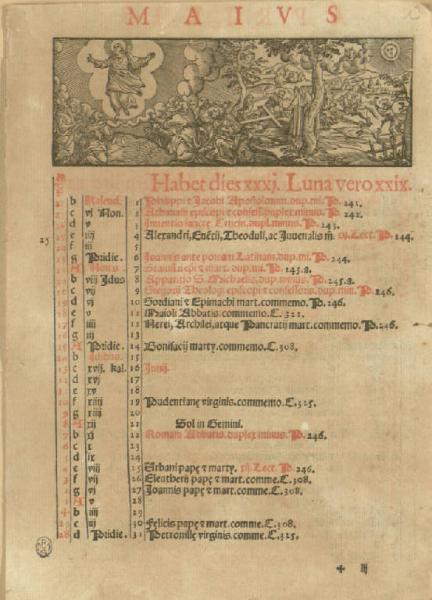 MAIVS
Habet dies xxxj. Luna vero xxix.
b Kalend. 1 Philippi & Jacobi Apostolorum. dup. mi. P. 241.
c vj Non. 2 Athanasii episcopi & confess. duplex minus. P. 242.
d v 3 Inventio sancte Crucis. dupl. minus. P. 243.
e iiij 4 Alexandri, Evētij, Theoduli, ac Juvenalis m. iij. Lect. P. 244.
f iij 5
g Pridie. 6 Joannis ante portam Latinam. dup. mi. P. 244.
A Nonis 7 Stanislai epi & mart. dup. mi. P. 245.a.
b viij Idus 8 Apparitio S. Michaelis. dup. minus. P. 245.a.
c vij 9 Gregorij Theolog. episcopi & confessoris. dup. min. P. 246.
d vj 10 Gordiani & Epimachi mart. commemo. P. 246.
e v 11 Maioli Abbatis. commemo. C. 321.
f iiij 12 Nerei, Archilei, atque Pancratij mart. commemo. P. 246.
g iij 13
A Pridie. 14 Bonifacij marty. commemo. C. 308.
b Idibus. 15
c xvij. kal. 16 Junij.
d xvj 17
e xv 18
f xiiij 19 Pudentianę virginis. commemo. C. 325.
g xiij 20
A xij 21 Sol in Gemini.
b xj 22 Romani Abbatis. duplex minus. P. 246.
c x 23
d ix 24
e viij 25 Urbani papę & marty. iij. Lect. P. 246.
f vij 26 Eleutherij papę & mart. comme. C. 308.
g vj 27 Joannis papę & mart. comme. C. 308.
A v 28
b iiij 29
c iij 30 Felicis papę & mart. comme. C. 308.
d Pridie. 31 Petronillę virginis. comme. C. 325.
✠ iij